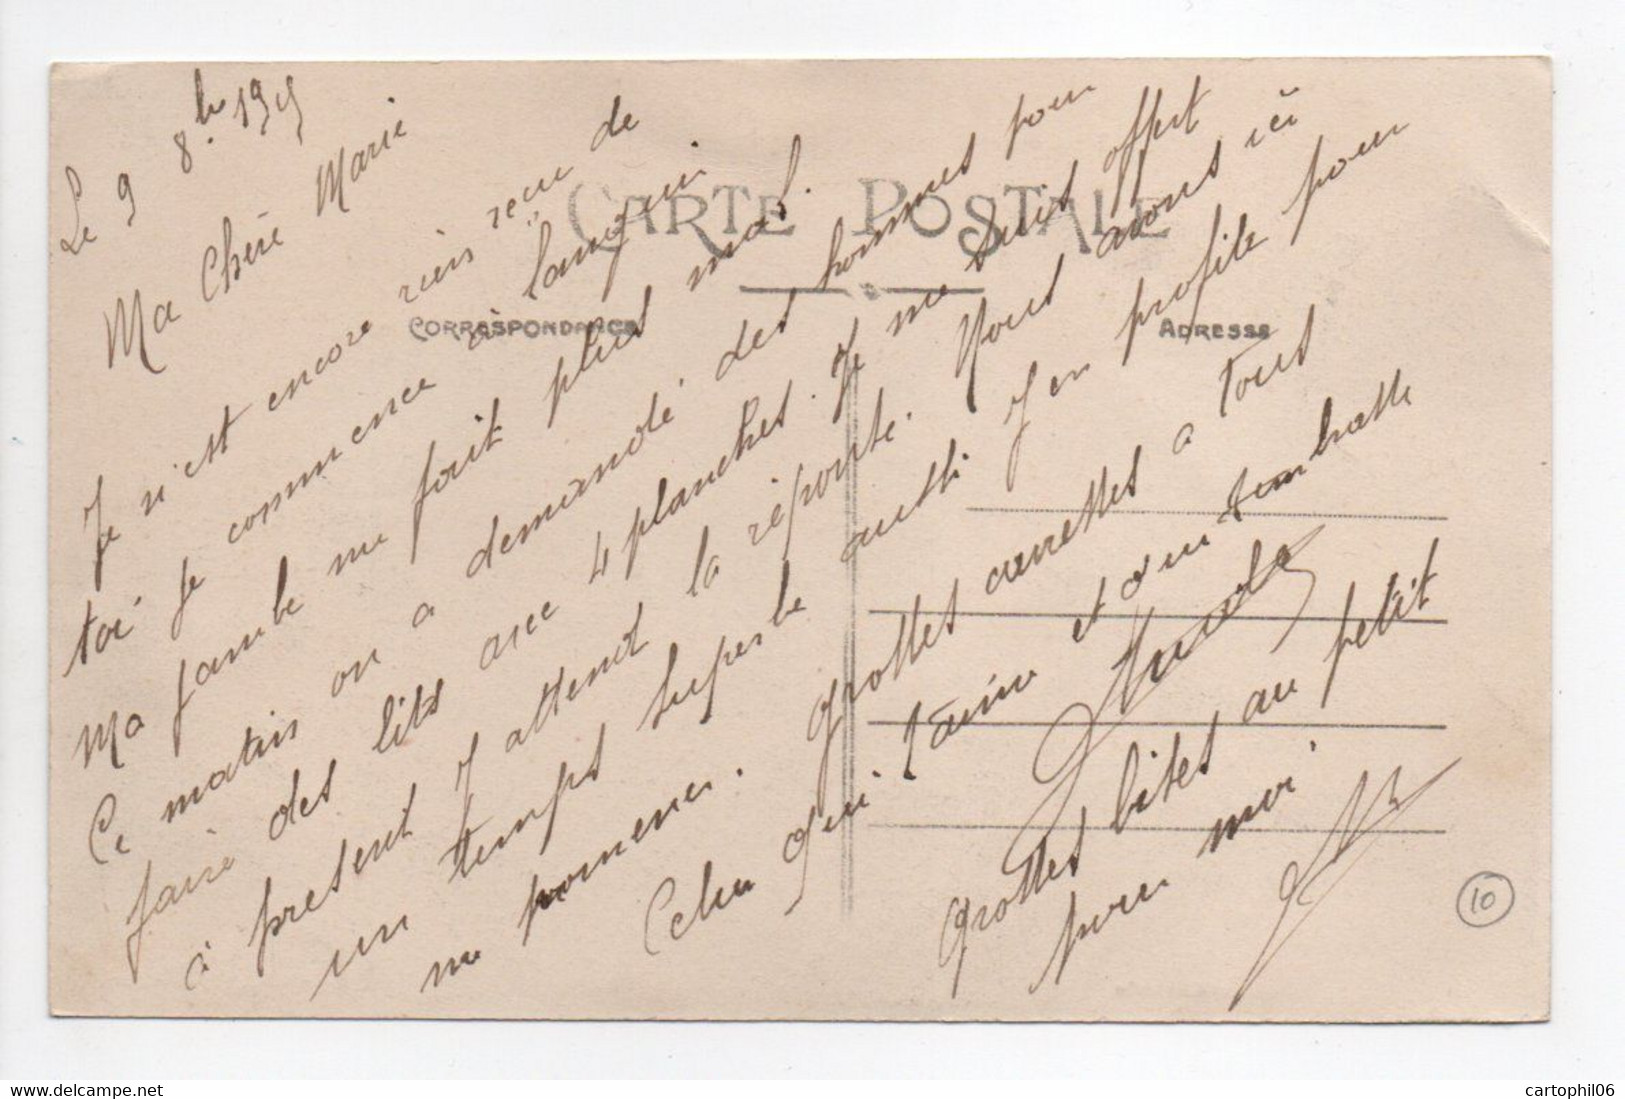 Le 9 8bre 1915
Ma Chère Marie
CARTE POSTALE
CORRESPONDANCE
ADRESSE
Je n'est encore rien reçu de
toi je commence à languir
Ma jambe me fait plus mal.
Ce matin on a demandé des hommes pour
faire des lits avec 4 planches. Je me suis offert
à présent J attend la réponse. Nous avons ici
un temps superbe aussi J en profite pour
me promener. grosses caresses a tous
Celui qui t'aime et qui t embrasse
grosses bises au petit
pour moi
10
www.delcampe.net
cartophil06